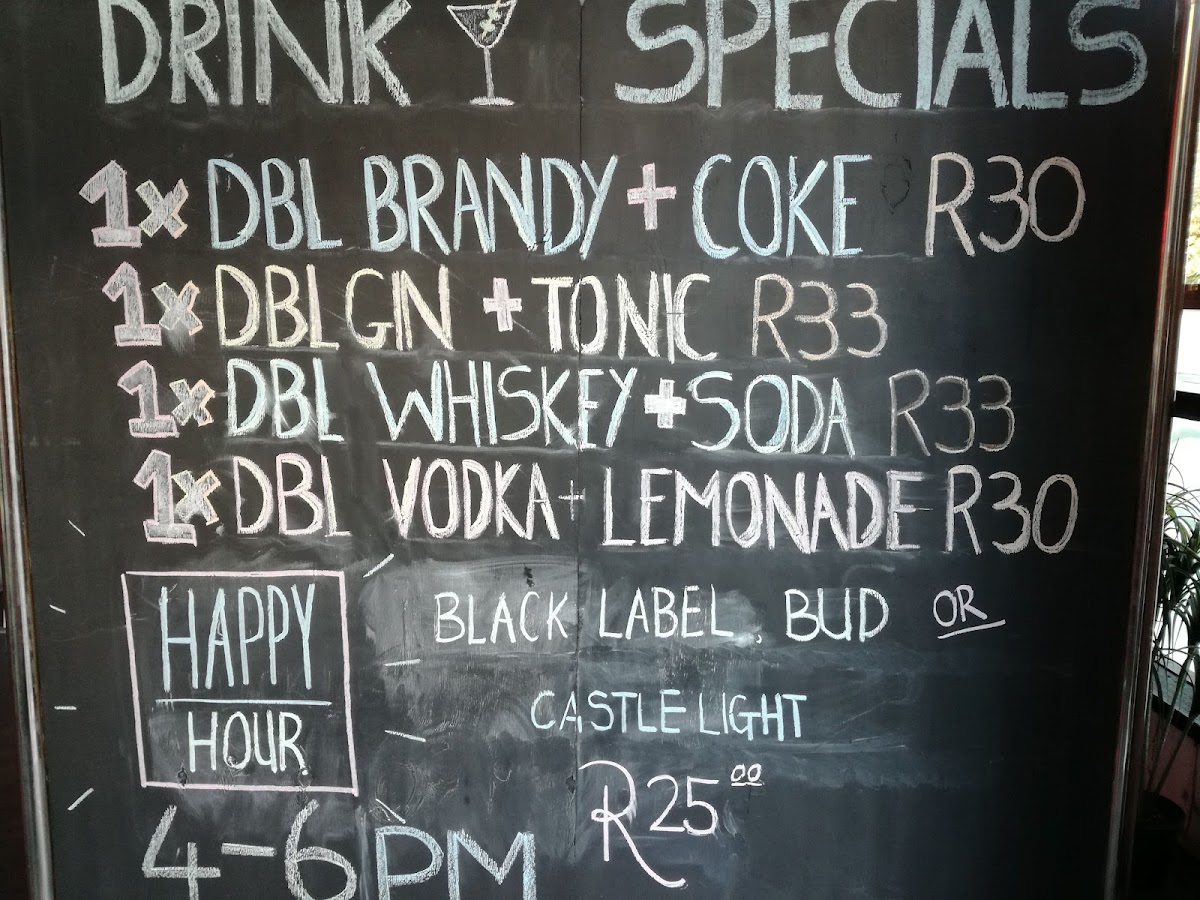 DRINK SPECIALS
1x DBL BRANDY + COKE R30
1x DBL GIN + TONIC R33
1x DBL WHISKEY + SODA R33
1x DBL VODKA + LEMONADE R30
HAPPY
HOUR
4-6PM
BLACK LABEL, BUD OR
CASTLE LIGHT
R25 00